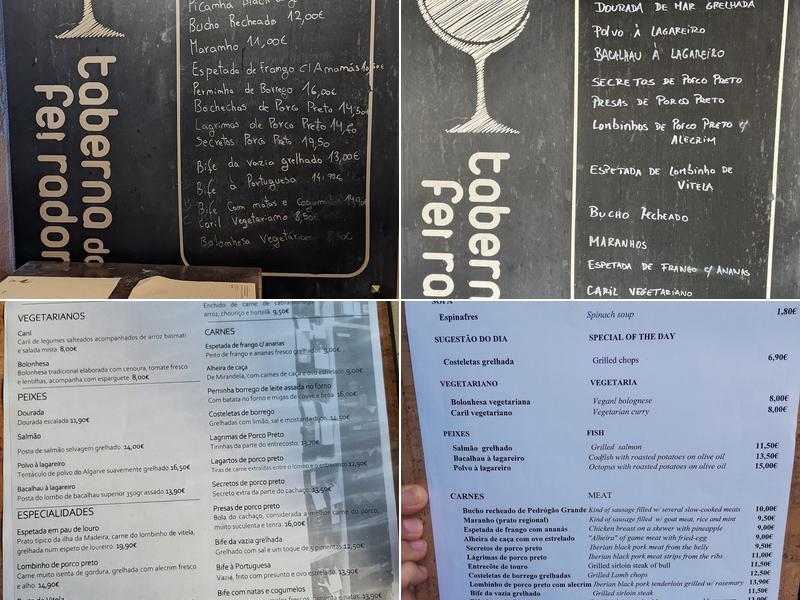 Bucho Recheado 12,00€
Maranho 11,00€
Espetada de Frango C/Ananás
Perninha de Borrego 16,00€
Bochechas de Porco Preto 14,50€
Lagrimas de Porco Preto 14,50
Secretos Porco Preto 19,50
Bife da vazia grelhado 13,00€
Bife à Portuguesa
Bife Com natas e Cogum
Caril Vegetariano 8,50€
Bolonhesa Vegetarian
taberna do
ferrador
DOURADA DE MAR GRELHADA
POLVO À LAGAREIRO
BACALHAU À LAGAREIRO
SECRETOS DE PORCO PRETO
PRESAS DE PORCO PRETO
LOMBINHOS DE PORCO PRETO c/
ALECRIM
ESPETADA DE LOMBINHO DE
VITELA
BUCHO RECHEADO
MARANHOS
ESPETADA DE FRANGO C/ ANANAS
CARIL VEGETARIANO
taberna
ferra
VEGETARIANOS
Caril
Caril de legumes salteados acompanhados de arroz basmati
e salada mista. 8,00€
Bolonhesa
Bolonhesa tradicional elaborada com cenoura, tomate fresco
e lentilhas, acompanha com esparguete. 8,00€
PEIXES
Dourada
Dourada escalada 11,90€
Salmão
Posta de salmão selvagem grelhado. 14,00€
Polvo à lagareiro
Tentáculo de polvo do Algarve suavemente grelhado 16,50€
Bacalhau à lagareiro
Posta do lombo de bacalhau superior 350gr assado. 13,90€
ESPECIALIDADES
Espetada em pau de louro
Prato típico da ilha da Madeira, carne do lombinho de vitela,
grelhada num espeto de loureiro. 19,90€
Lombinho de porco preto
Carne muito isenta de gordura, grelhada com alecrim fresco
e alho. 14,90€
Enchido de carne de cabra
arroz, chouriço e hortelã. 9,50€
CARNES
Espetada de frango c/ ananas
Peito de frango e ananas fresco grelhados. 9,00€
Alheira de caça
De Mirandela, com carnes de caça e ovo estrelado. 9,00€
Perninha borrego de leite assada no forno
Com batata no forno e migas de couve e broa. 16,00€
Costeletas de borrego
Grelhadas com limão, sal e mostarda dijon. 14,50€
Lagrimas de Porco Preto
Tirinhas da parte do entrecosto. 13,70€
Lagartos de porco preto
Tiras de carne extraídas entre o lombo e o entrecosto 12,50€
Secretos de porco preto
Secreto extra da parte do cachaço. 13,50€
Presas de porco preto
Bola do cachaço, considerada a melhor carne do porco,
muito suculenta e tenra. 16,00€
Bife da vazia grelhado
Grelhado com sal e um toque de 5 pimentas. 12,50€
Bife à Portuguesa
Vazia, frito com presunto e ovo estrelado. 13,90€
Bife com natas e cogumelos
SOPA
Espinafres Spinach soup 1,80€
SUGESTÃO DO DIA SPECIAL OF THE DAY
Costeletas grelhada Grilled chops 6,90€
VEGETARIANO VEGETARIA
Bolonhesa vegetariana Veganl bolognese 8,00€
Caril vegetariano Vegetarian curry 8,00€
PEIXES FISH
Salmão grelhado Grilled salmon 11,50€
Bacalhau à lagareiro Codfish with roasted potatoes on olive oil 13,50€
Polvo à lagareiro Octopus with roasted potatoes on olive oil 15,00€
CARNES MEAT
Bucho recheado de Pedrógão Grande Kind of sausage filled w/ several slow-cooked meats 10,00€
Maranho (prato regional) Kind of sausage filled w/ goat meat, rice and mint 9,50€
Espetada de frango com ananás Chicken breast on a skewer with pineapple 9,00€
Alheira de caça com ovo estrelado "Alheira" of game meat with fried-egg 9,00€
Secretos de porco preto Iberian black pork meat from the belly 9,50€
Lágrimas de porco preto Iberian black pork meat strips from the ribs 11,00€
Entrecôte de touro Grilled sirloin steak of bull 11,50€
Costeletas de borrego grelhadas Grilled Lamb chops 12,50€
Lombinhos de porco preto com alecrim Iberian black pork tenderloin grilled w/ rosemary 13,90€
Bife da vazia grelhado Grilled sirloin steak 11,50€